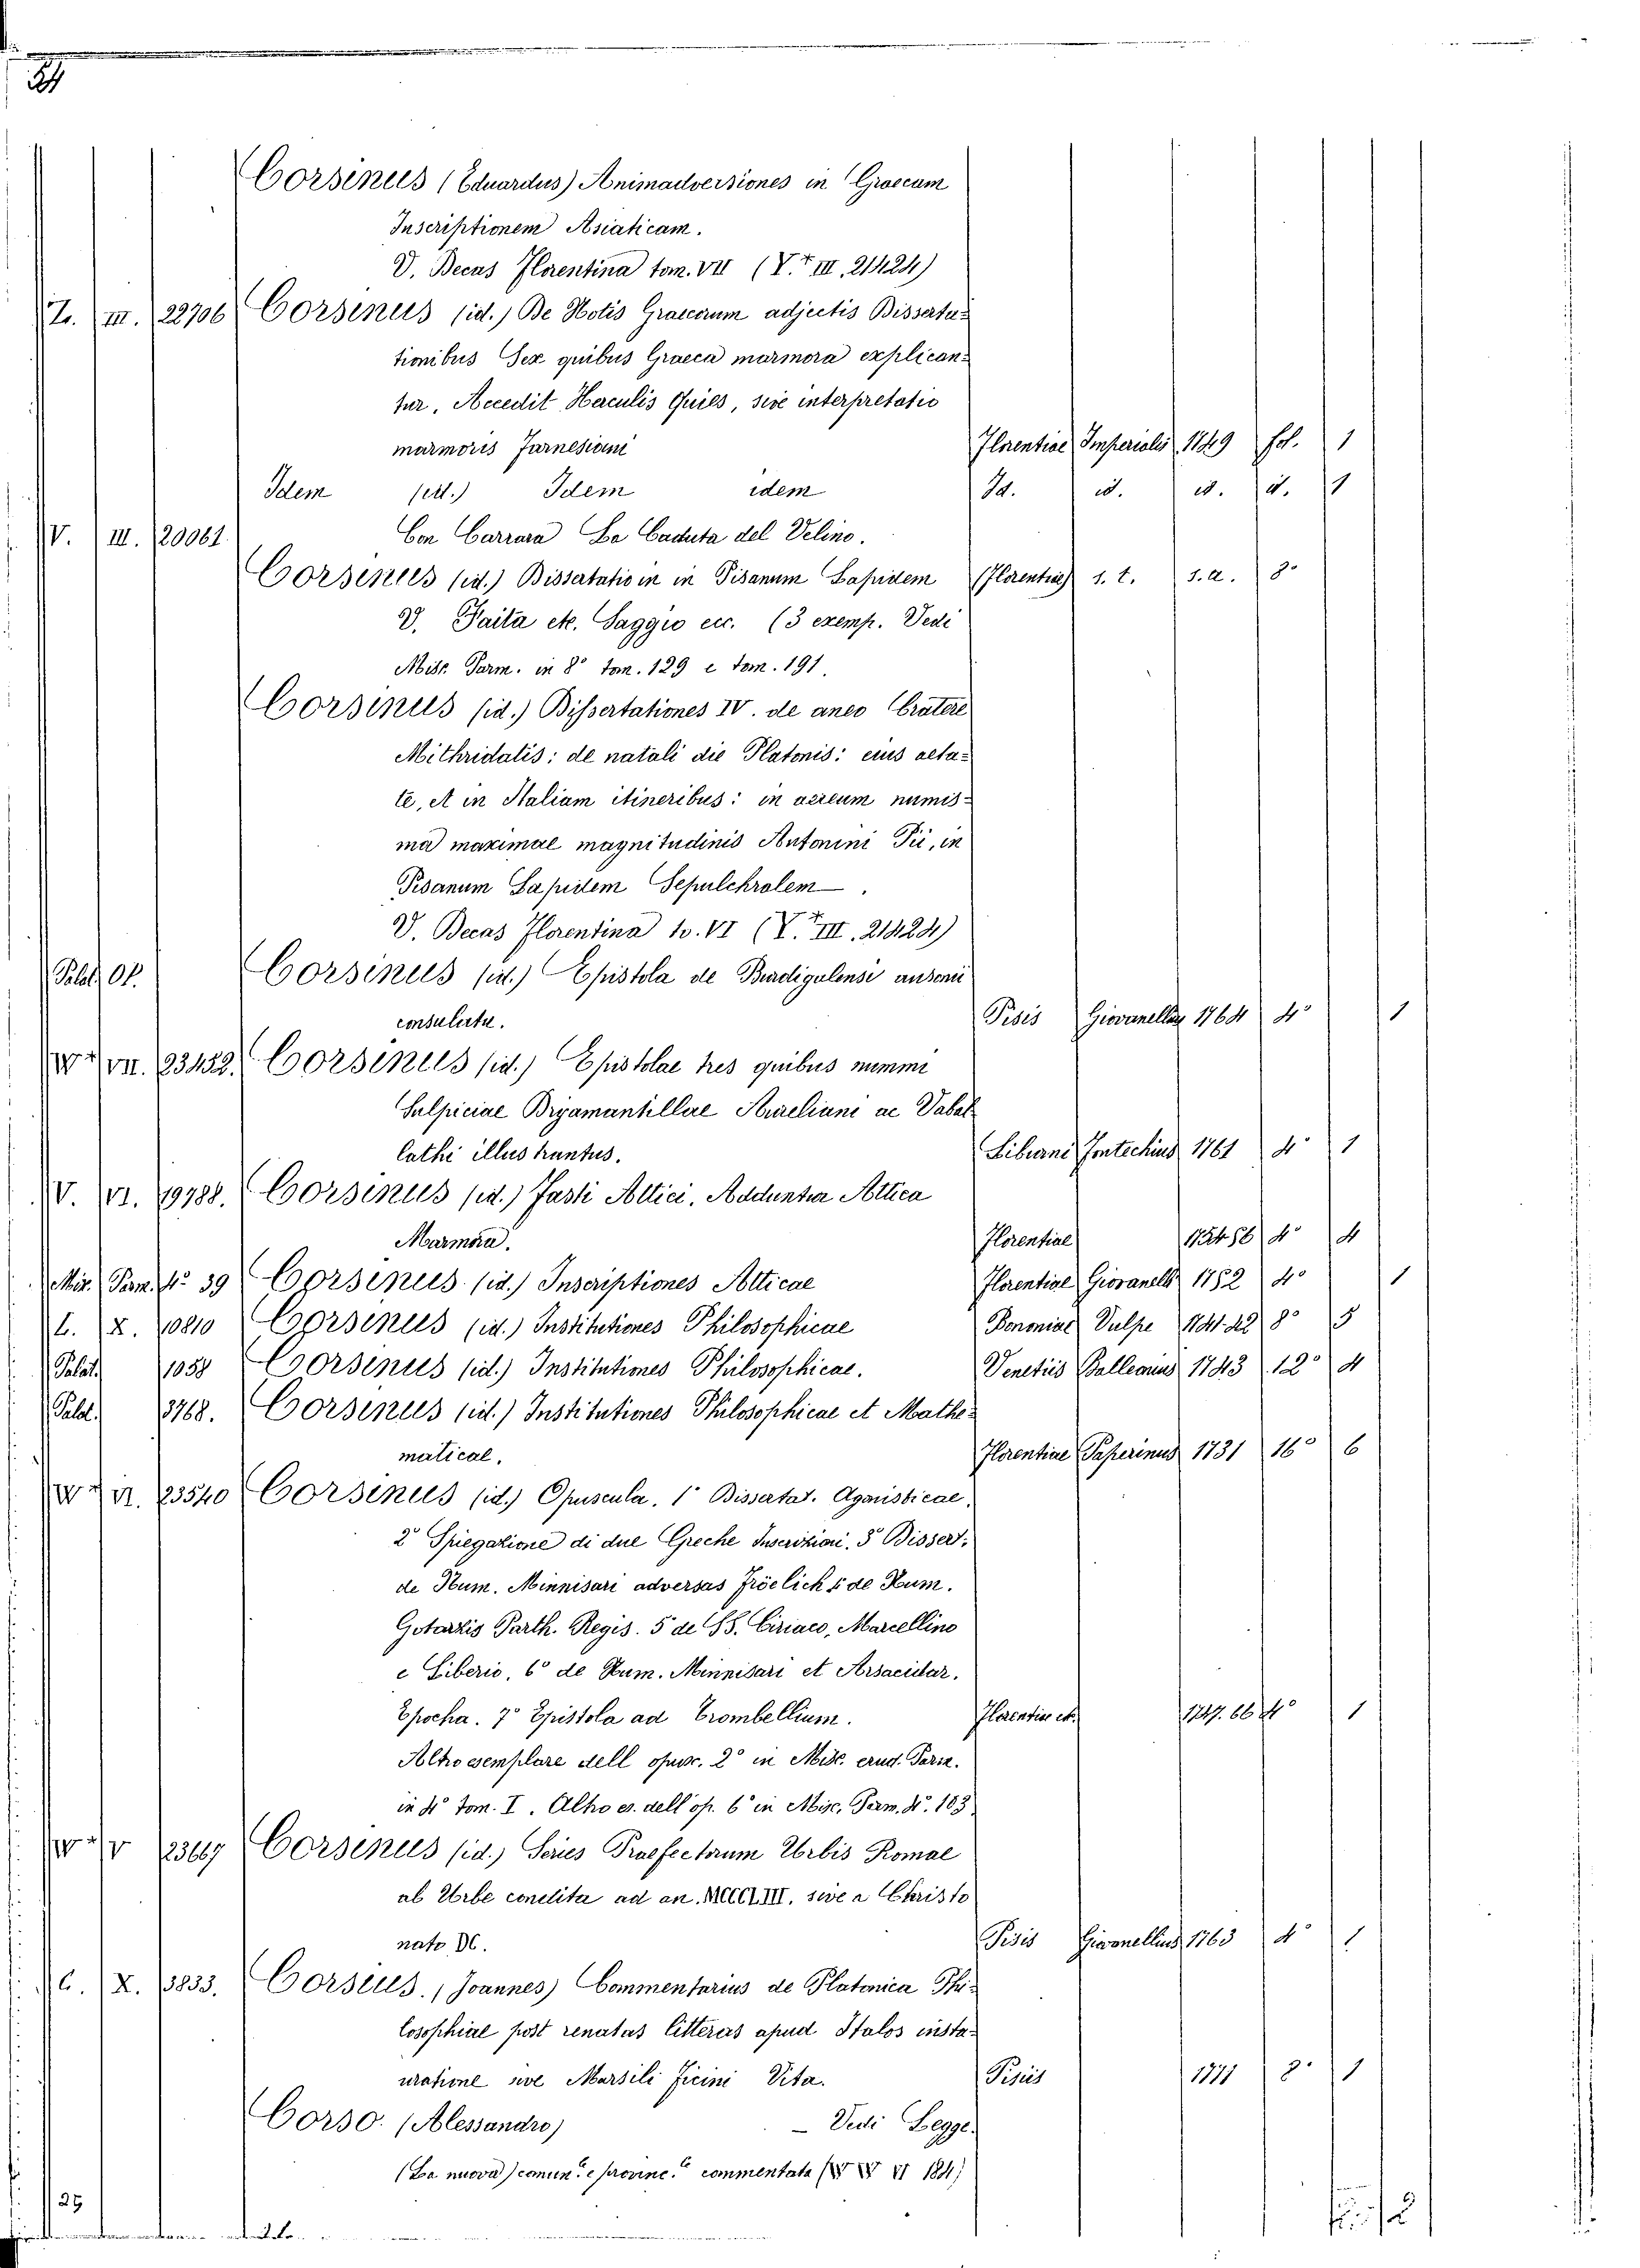 24
Corsinus (Eduardus) Animadversiones in Graecam
Inscriptionem Asiaticam.
V. Decas Florentina tom. VII (Y.T III. 21424)
Z. III. 22706 Corsinus (id.) De Notis Graecorum adjectis Disserta=
tionibus Sex quibus Graeca marmora explican=
tur. Accedit Herculis Quies, sive interpretatio
marmoris Farnesiani Florentiae Imperialis 1749 fol. 1
Idem (id.) Idem idem Id. id. id. id. 1
V. III. 20061. Con Carrara La Caduta del Velino.
Corsinus (id.) Dissertatio in in Pisanum Lapidem (Florentiae) s. t. s. a. 8°
V. Faita etc. Saggio ecc. (3 exemp. Vedi
Misc. Parm. in 8° tom. 129 e tom. 191.
Corsinus (id.) Dissertationes IV. de aneo Cratere
Mithridatis; de natali die Platonis: eius aeta=
te, et in Italiam itineribus: in aereum numis=
ma maximae magnitudinis Antonini Pii, in
Pisanum Lapidem Sepulchralem.
V. Decas Florentina to. VI (Y.T III. 21424)
Palat. Of. Corsinus (id.) Epistola de Burdigalensi ausonii
consulatu. Pisis Giovanellus 1764 4° 1
VII. 23452. Corsinus (id.) Epistolae tres quibus nummi
Sulpiciae Dryamantillae Aureliani ac Vabal
lathi illustrantus. Liburni Fontechius 1761 4° 1
V. VI. 19788. Corsinus (id.) Fasti Attici. Adduntur Attica
Marmora. Florentiae 1744 56 4° 4
Mis. Parm. 4° 39 Corsinus (id.) Inscriptiones Atticae Florentiae Giovanelli 1752 4° 1
L. X. 10810 Corsinus (id.) Institutiones Philosophicae Bononiae Vulpe 1741 42 8° 5
Palat. 1058 Corsinus (id.) Institutiones Philosophicae. Venetiis Balleonius 1743 12° 4
Palat. 3768. Corsinus (id.) Institutiones Philosophicae et Mathe=
maticae. Florentiae Paperinus 1731 16° 6
VI. 23540 Corsinus (id.) Opuscula. 1° Dissertat. Agonisticae,
2° Spiegazione di due Greche Inscrizioni. 3° Dissert.
de Num. Minnisari adversas Fröelich 4 de Num.
Gotarzis Parth. Regis. 5 de SS. Ciriaco, Marcellino
e Liberio, 6° de Num. Minnisari et Arsacidar.
Epocha. 7° Epistola ad Trombellium. Florentiae etc. 1747. 66 4° 1
Altro esemplare dell opusc. 2° in Misc. erud. Parm.
in 4° tom. I. Altro es. dell'op. 6° in Misc. Parm. 4°. 103
V 23667 Corsinus (id.) Series Praefectorum Urbis Romae
ab Urbe condita ad an. MCCCLIII. sive a Christo
nato DC. Pisis Giovanellius 1763 4° 1
C. X. 3833. Corsius. (Joannes) Commentarius de Platonica Phi=
losophiae post renatas litteras apud Italos insta=
uratione sive Marsili Ficini Vita. Pisiis 1771 8° 1
Corso. (Alessandro) _ Vedi Legge.
(La nuova) comun.e provinc. commentata VI 184)
25